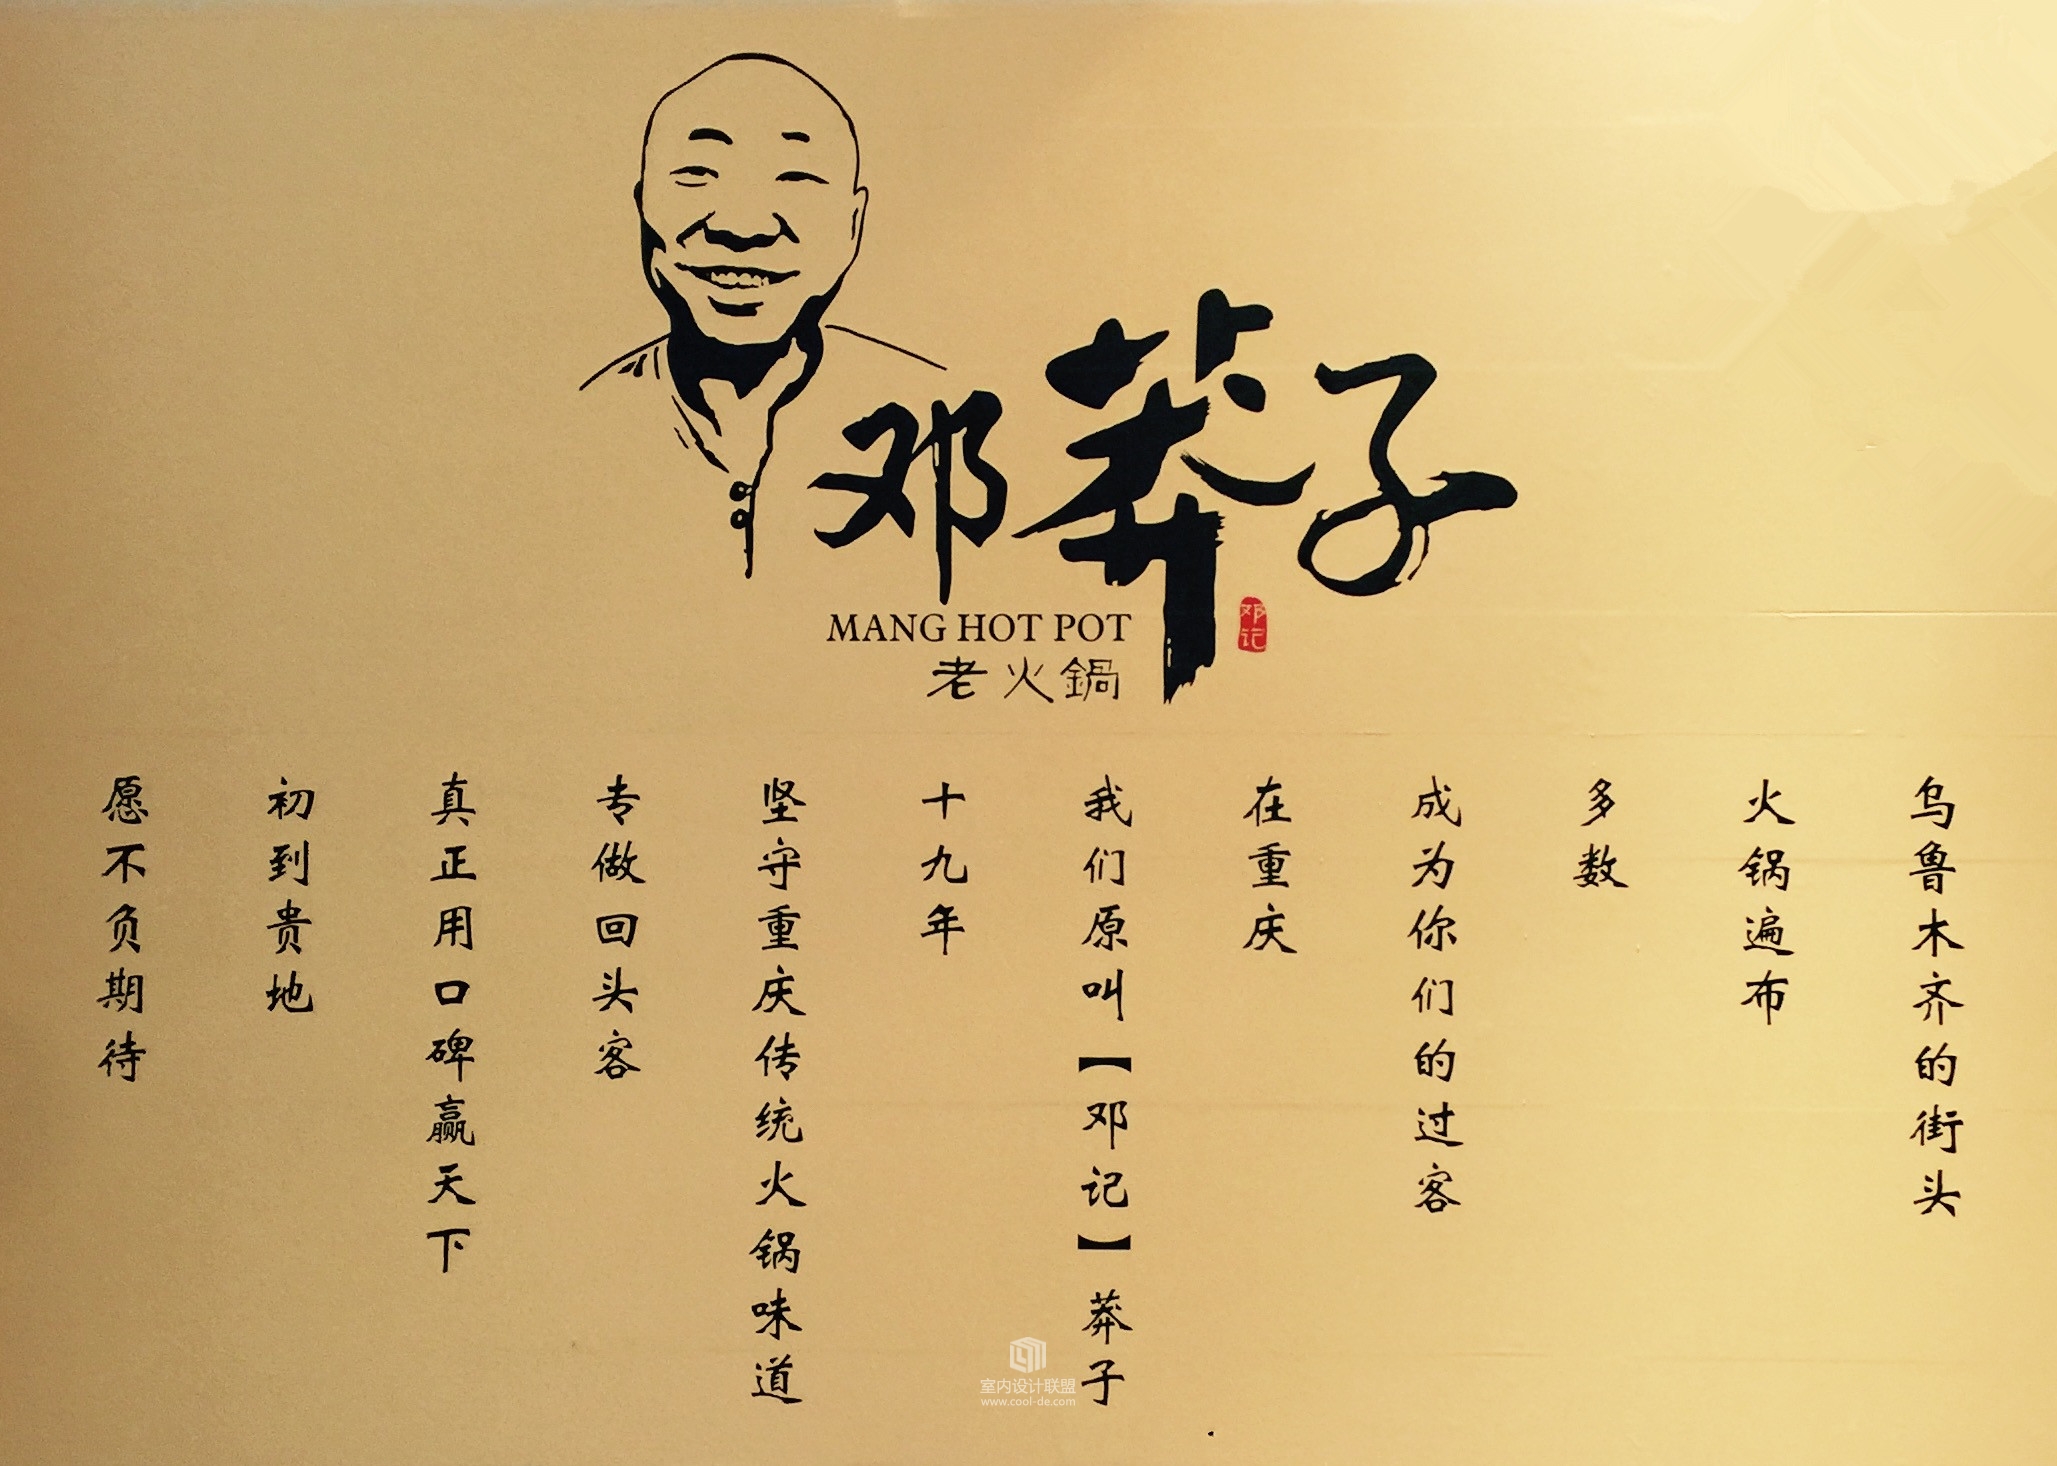 邓莽子
MANG HOT POT
邓记
老火鍋
乌鲁木齐的街头
火锅遍布
多数
成为你们的过客
在重庆
我们原叫【邓记】莽子
十九年
坚守重庆传统火锅味道
专做回头客
真正用口碑赢天下
初到贵地
愿不负期待
室内设计联盟
www.cool-de.com